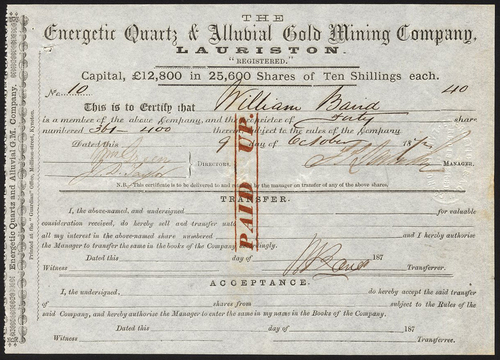 THE
Energetic Quartz & Alluvial Gold Mining Company,
LAURISTON.
"REGISTERED."
Capital, £12,800 in 25,600 Shares of Ten Shillings each.
No. 10 40
This is to Certify that William Baud
is a member of the above Company, and the of Forty share
numbered 361 - 400 thereof, subject to the rules of the Company.
Dated this 9 day of October 187
DIRECTORS. MANAGER.
N.B. This certificate is to be delivered to and by the manager on transfer of any of the above shares.
TRANSFER.
I, the above-named, and undersigned for valuable
consideration received, do hereby sell and transfer unto
all my interest in the above share numbered and I hereby authorise
the Manager to transfer the same in the books of the Company accordingly.
Dated this day of 187
Witness Transferrer.
ACCEPTANCE.
I, the undersigned, do hereby accept the said transfer
of shares from subject to the Rules of the
said Company, and hereby authorise the Manager to enter the same in my name in the Books of the Company.
Dated this day of 187
Witness Transferree.
PAID UP.
Energetic Quartz and Alluvial G.M. Company.
Printed at the "Guardian" Office, Mollison-street, Kyneton.